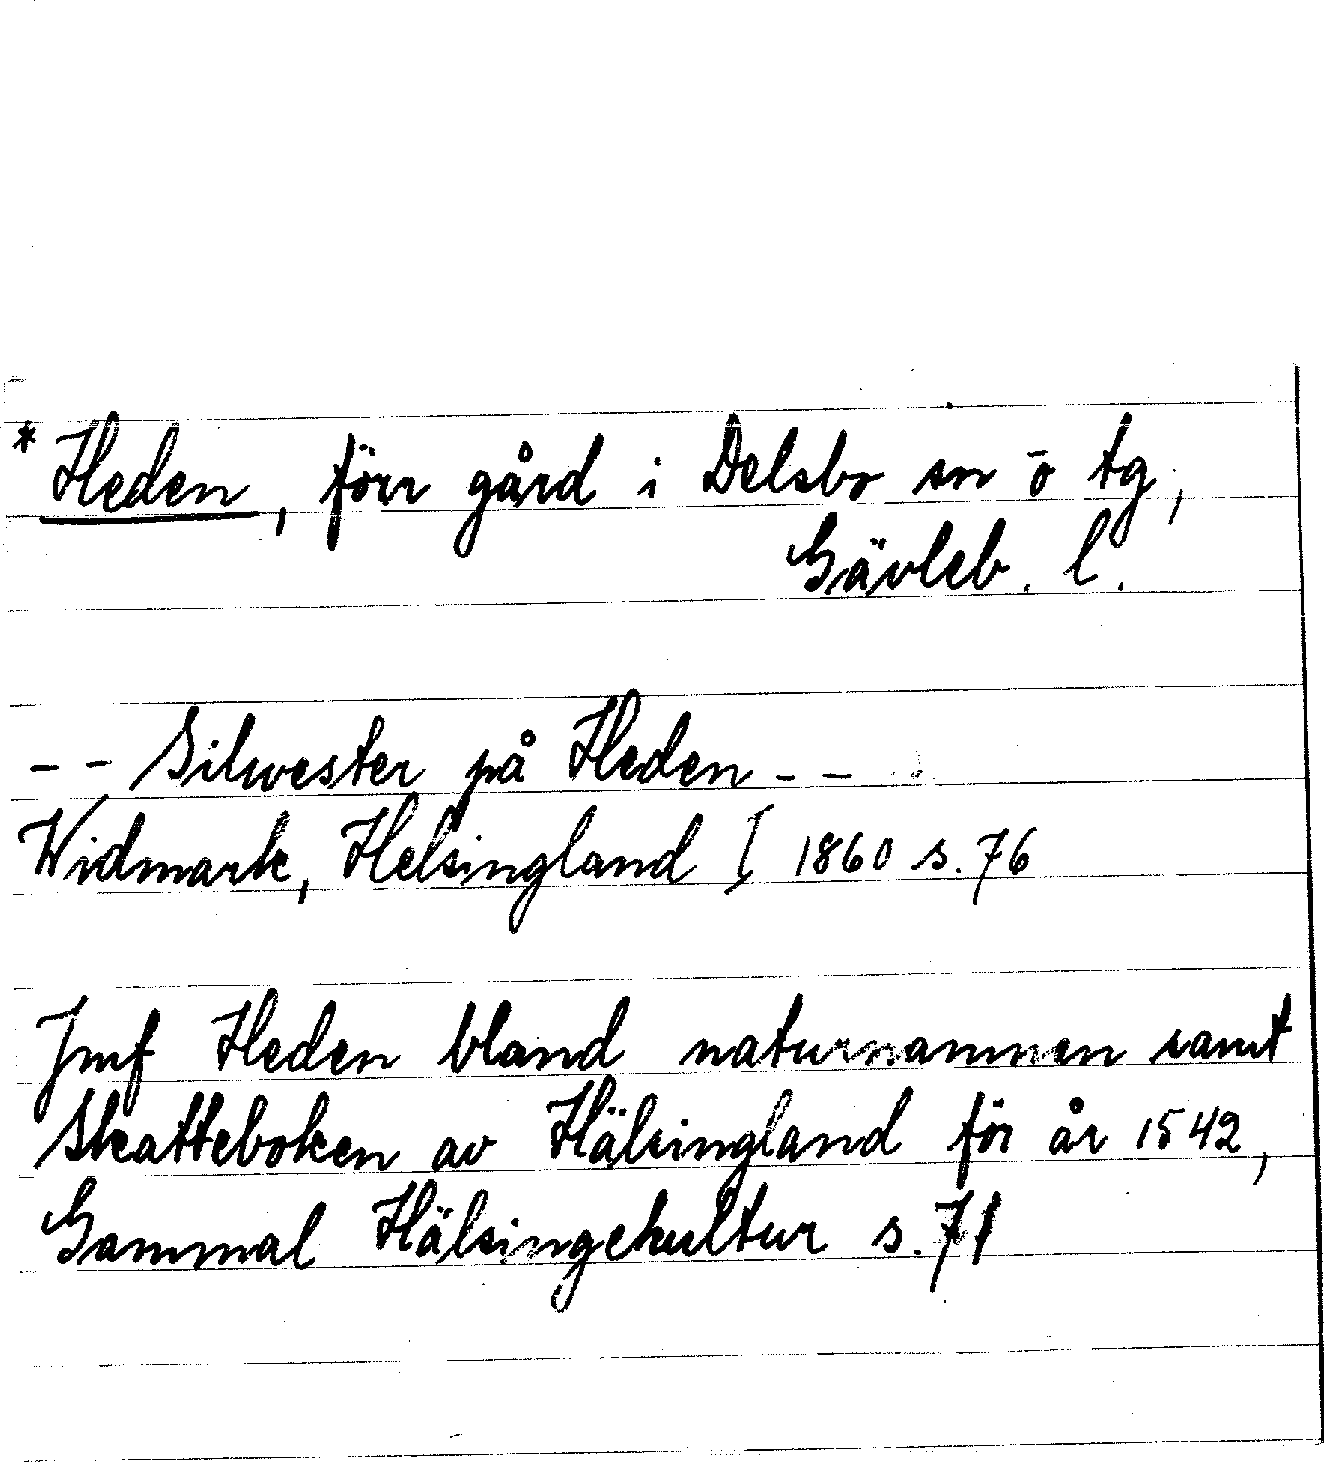 * Heden, förr gård i Delsbo sn ō tg,
Gävleb. l.
-- Silwester på Heden --
Widmark, Helsingland I 1860 s. 76
Jmf Heden bland naturnamnen samt
Skatteboken av Hälsingland för år 1542,
Gammal Hälsingekultur s. 71